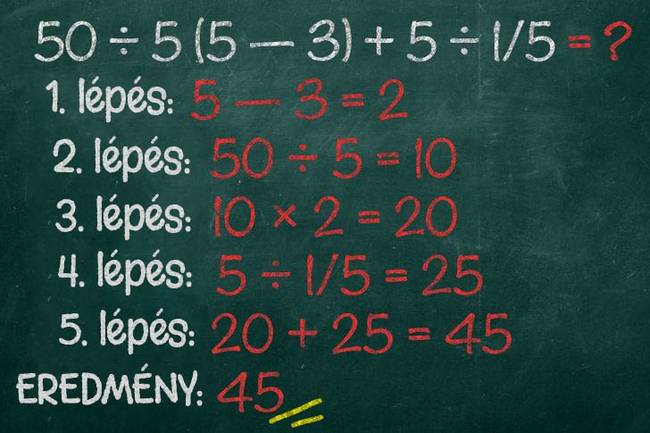 50 ÷ 5 (5 — 3) + 5 ÷ 1/5 = ?
1. lépés: 5 — 3 = 2
2. lépés: 50 ÷ 5 = 10
3. lépés: 10 × 2 = 20
4. lépés: 5 ÷ 1/5 = 25
5. lépés: 20 + 25 = 45
EREDMÉNY: 45